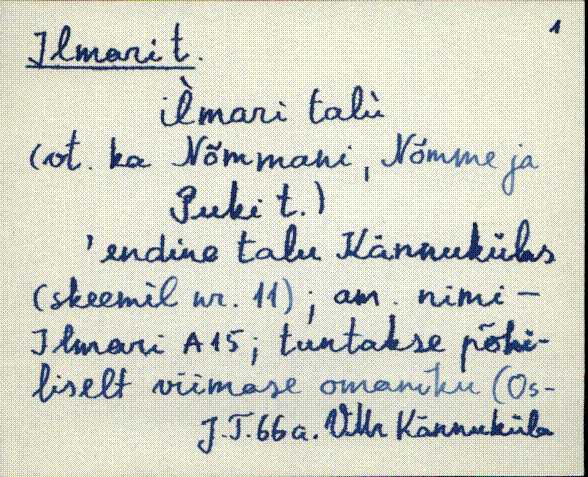 1
Ilmari t.
ìlmari talù
(vt. ka Nõmmani, Nõmme ja
Puki t.)
'endine talu Kännukülas
(skeemil nr. 11); am. nimi –
Ilmari A15; tuntakse põhi-
liselt viimase omaniku (Os-
J.T. 66 a. VMr Kännuküla